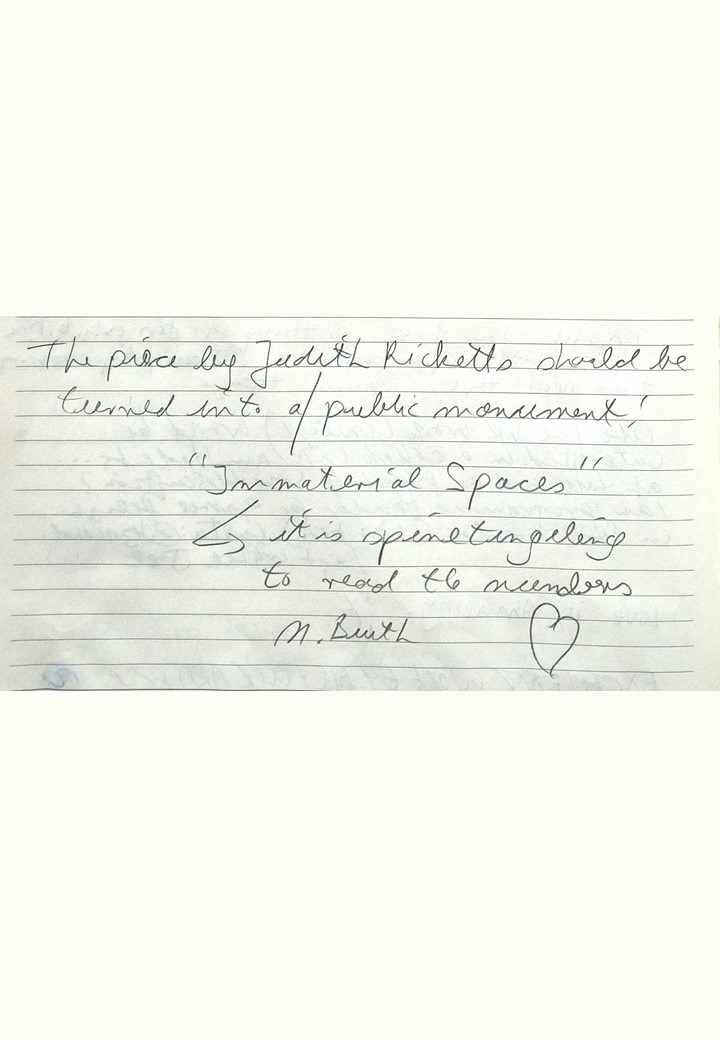 The piece by Judith Ricketts should be
turned into a public monument!
"Immaterial Spaces"
it is spinetingeling
to read the numbers